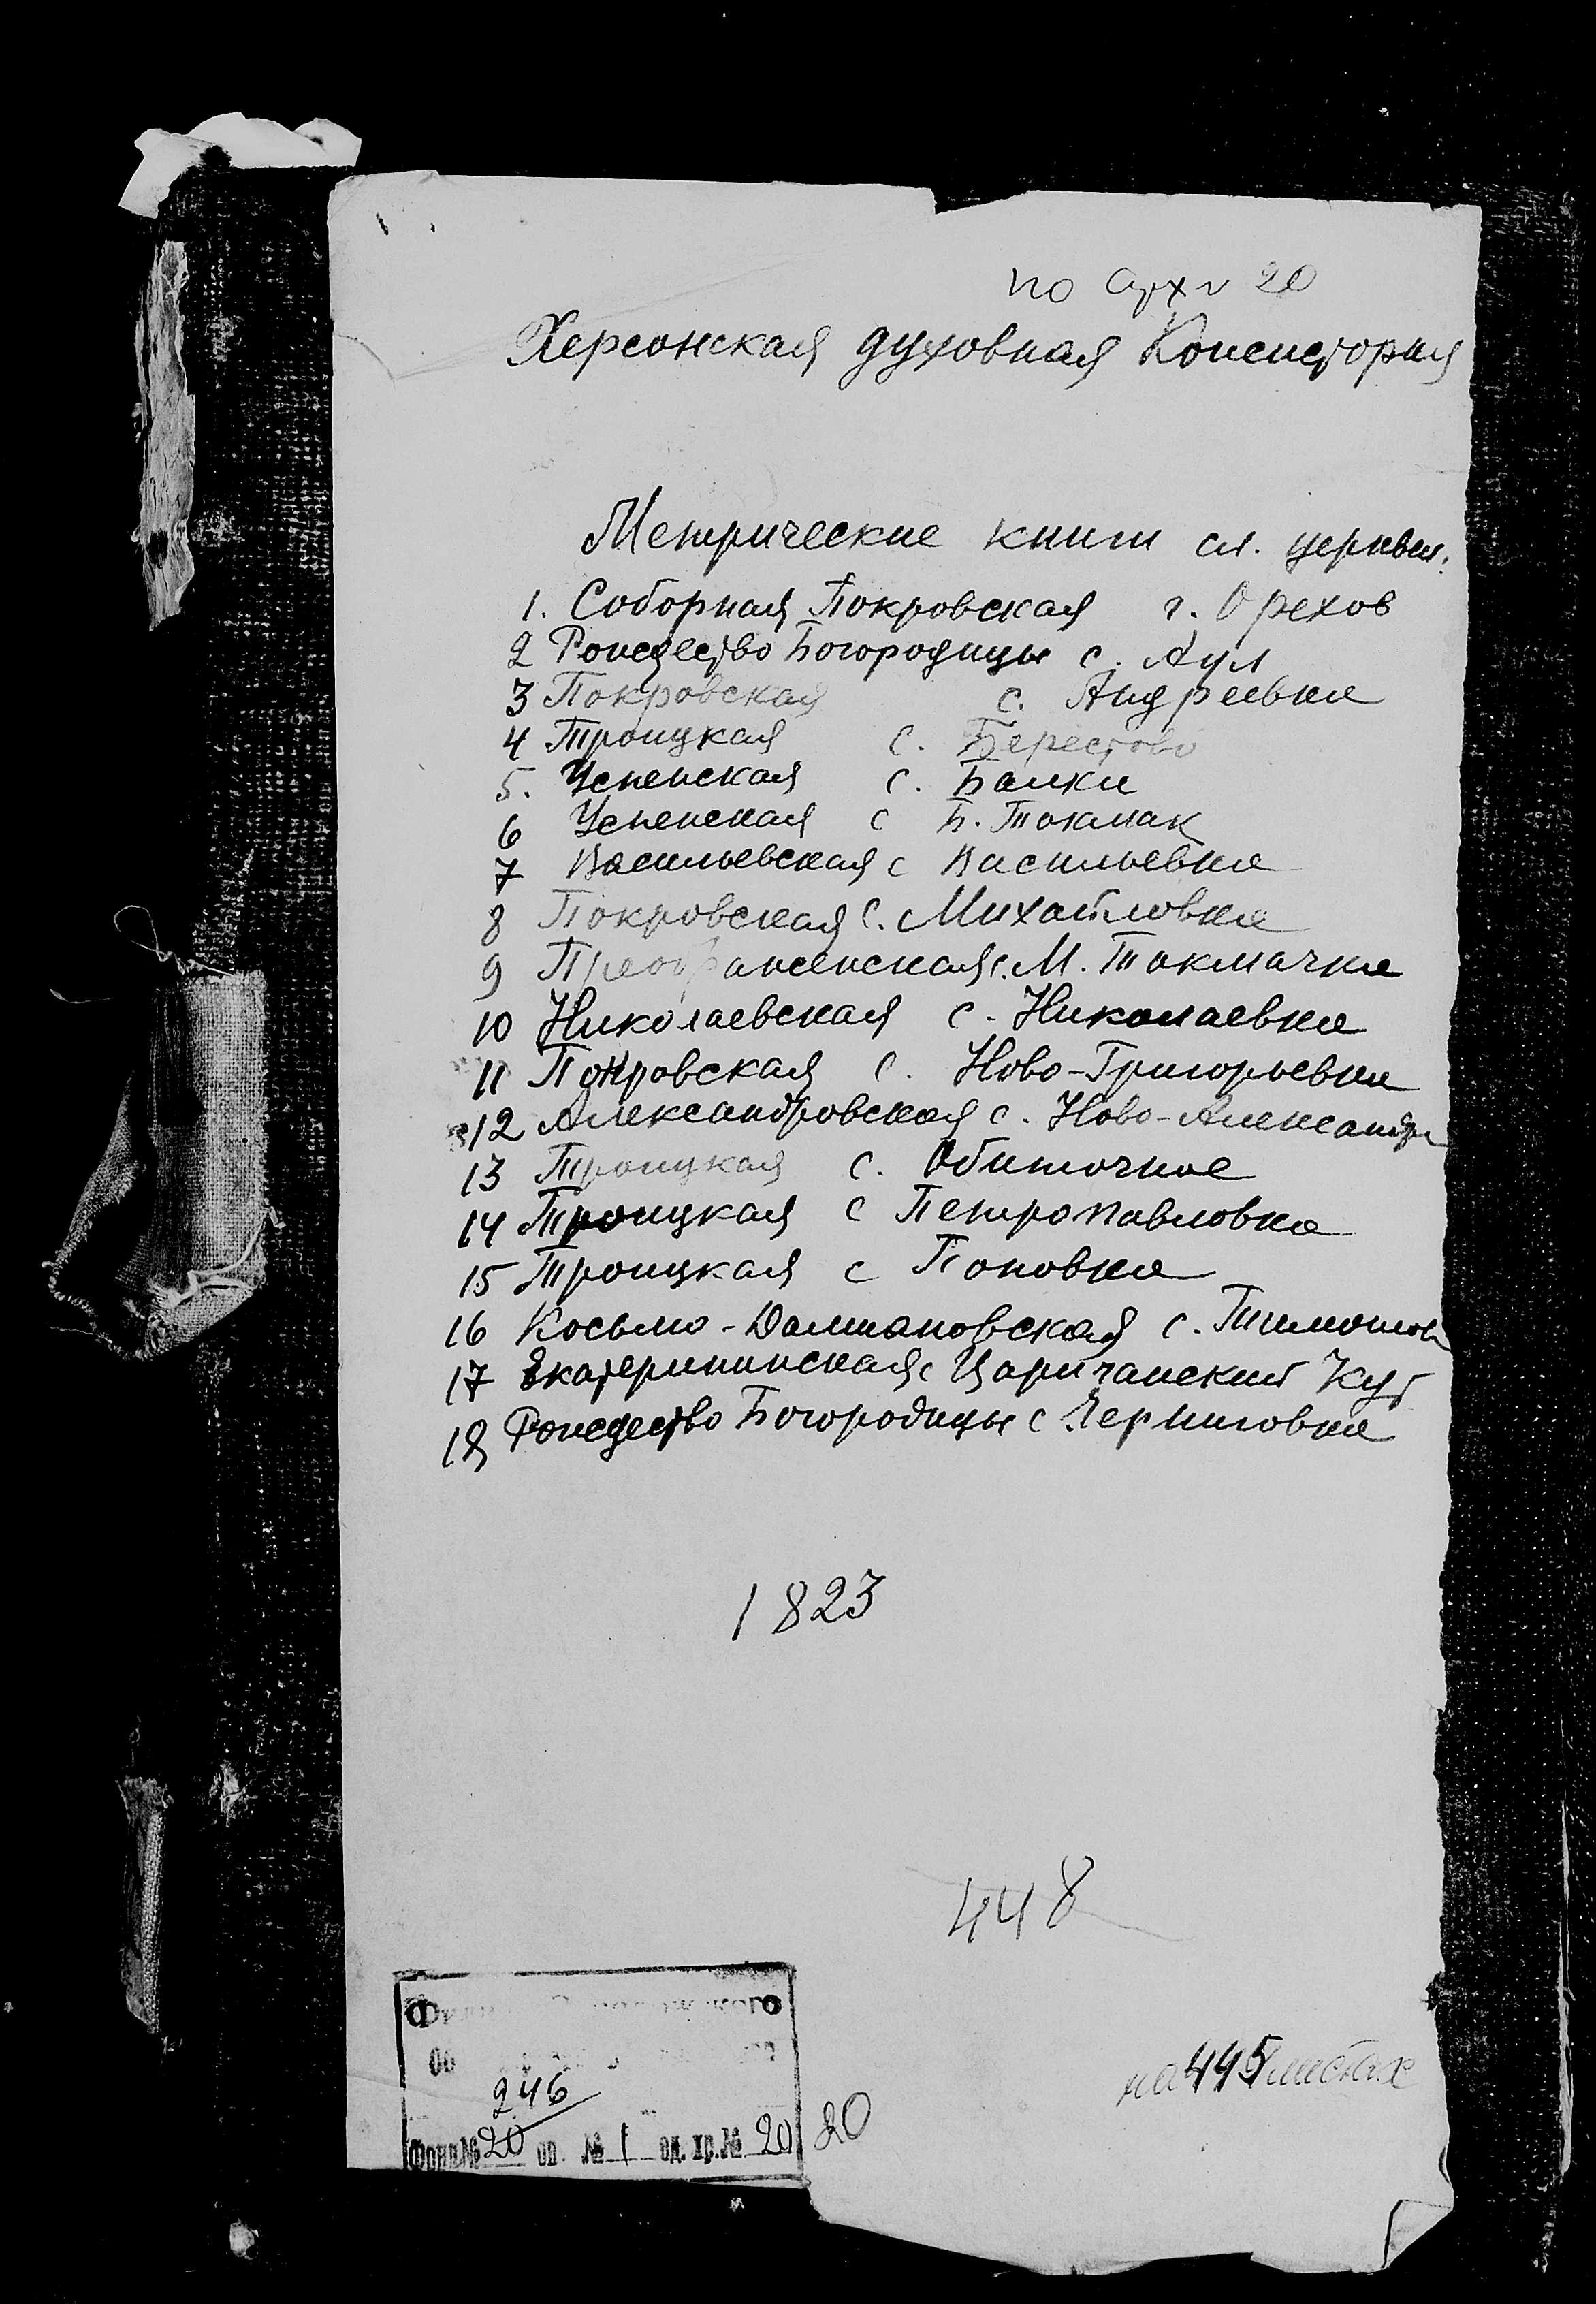 по арх 20
Херсонская духовная Консистория
Метрические книги сл. церквей:
1. Соборная Покровская г. Орехов
2 Рождество Богородицы с. Аул
3 Покровская с. Андреевка
4 Троицкая с. Берестово
5. Успенская с. Балки
6 Успенская с Б. Токмак
7 Васильевская с Васильевка
8 Покровская с. Михайловка
9 Преображенская с. М. Токмачка
10 Николаевская с. Николаевка
11 Покровская с. Ново-Григорьевка
12 Александровская с. Ново-Александр
13 Троицкая с. Обиточное
14 Троицкая с Петропавловка
15 Троицкая с Поповка
16 Косьмо-Дамиановская с. Тимошов
17 Екатерининская с Царичанский Кут
18 Рождество Богородицы с Черниговка
1823
448
на 445 листах
246
Фонд № 20 оп. № 1 ед. хр. № 20 20